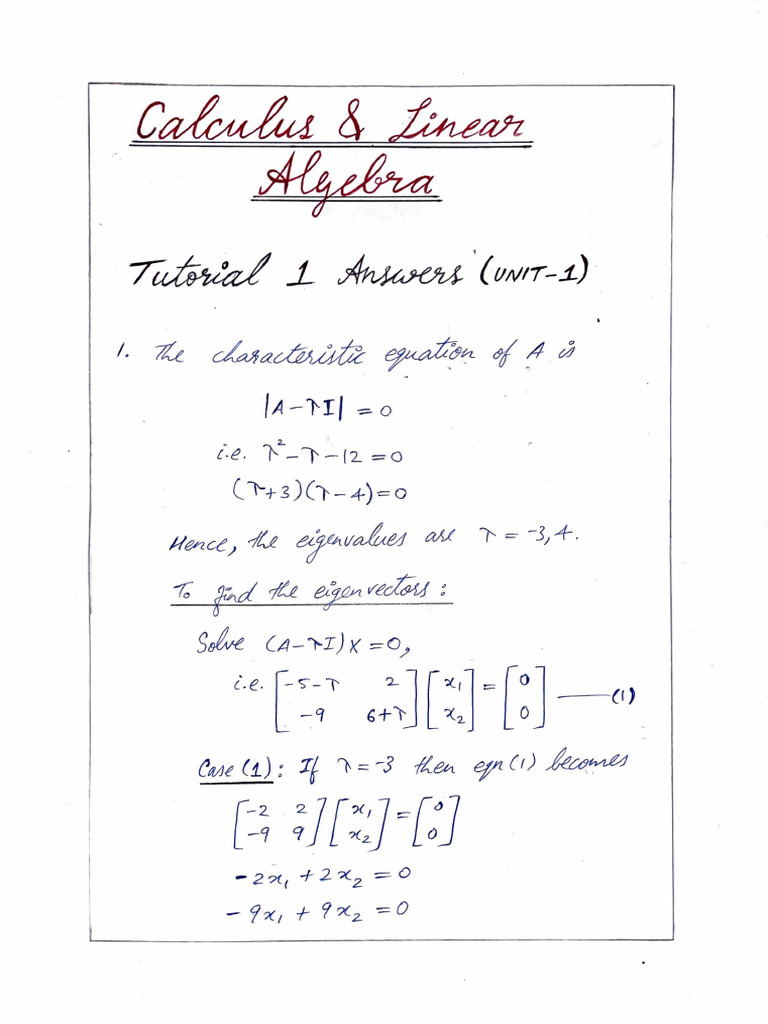 Calculus & Linear
Algebra
Tutorial 1 Answers (UNIT-1)
1. The characteristic equation of A is
|A-λI| = 0
i.e. λ²-λ-12 = 0
(λ+3)(λ-4) = 0
Hence, the eigenvalues are λ = -3, 4.
To find the eigenvectors:
Solve (A-λI)X = 0,
i.e. [-5-λ 2] [x₁] = [0] —— (1)
[-9 6+λ] [x₂] [0]
Case (1): If λ = -3 then eqn (1) becomes
[-2 2] [x₁] = [0]
[-9 9] [x₂] [0]
-2x₁ + 2x₂ = 0
-9x₁ + 9x₂ = 0